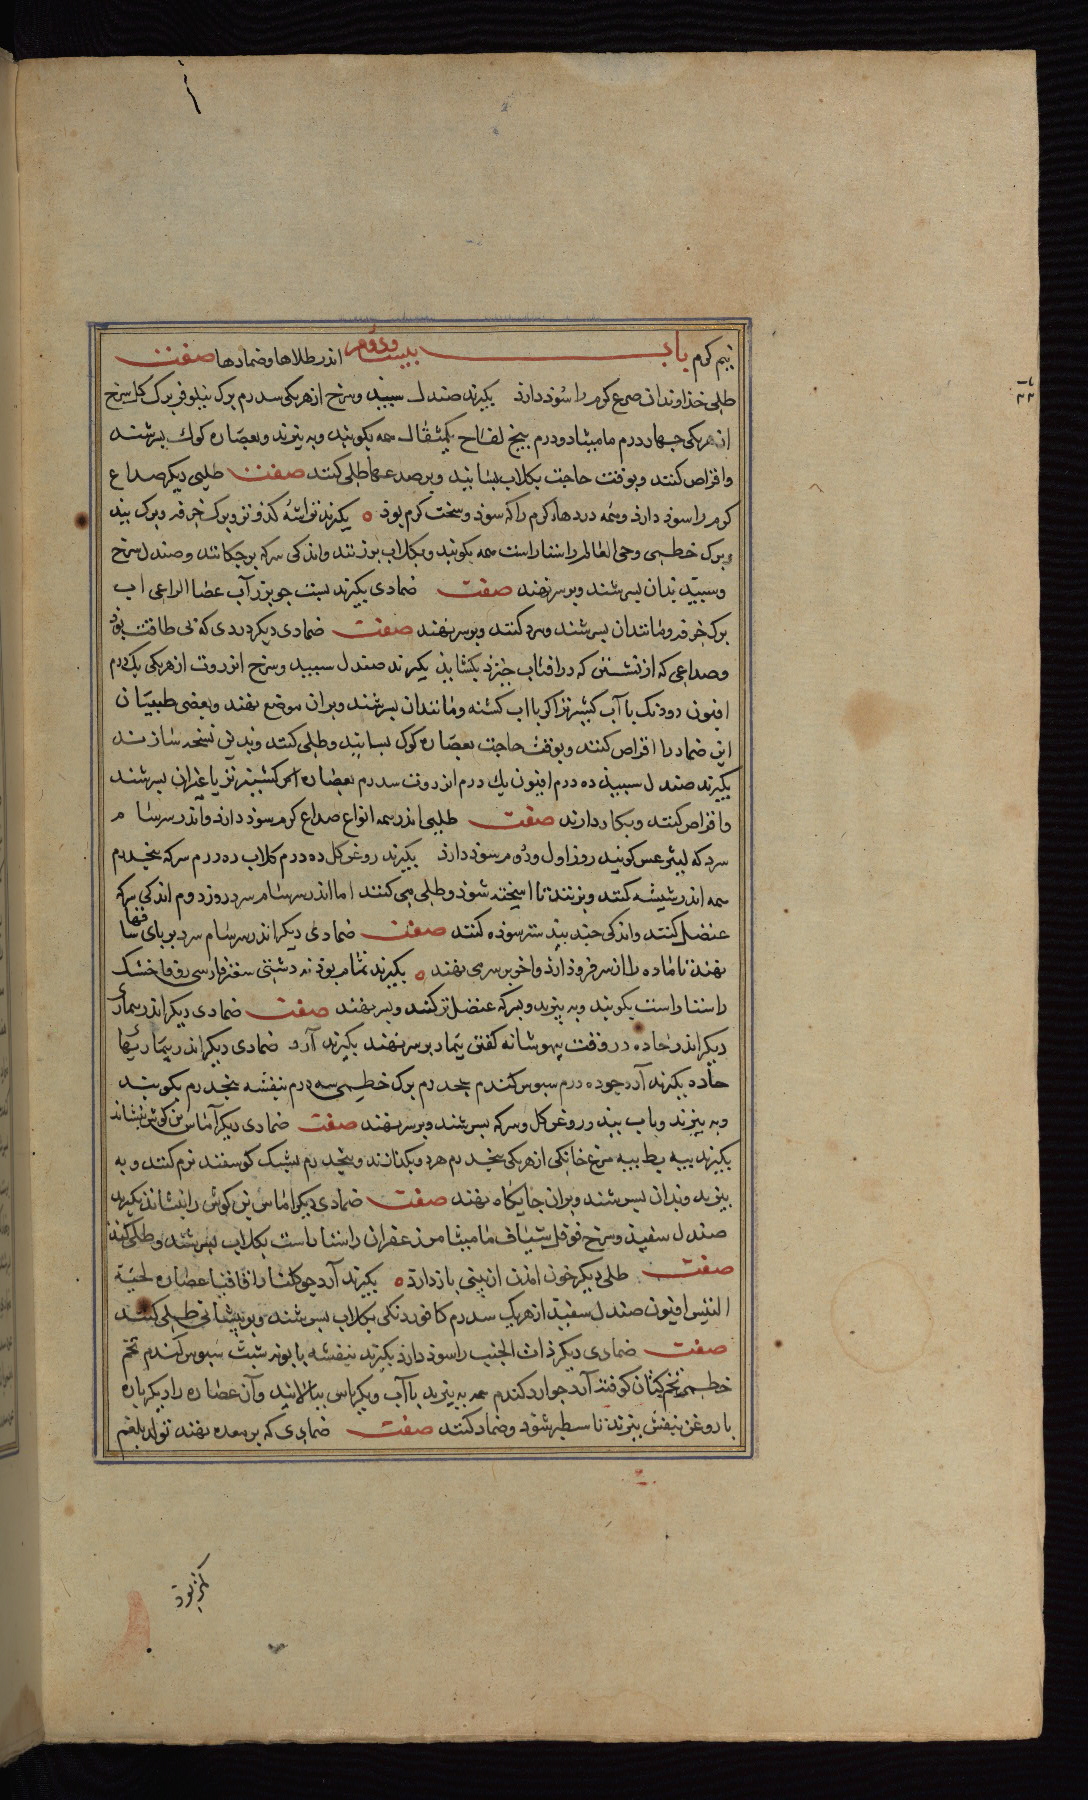 نیم کرم باب بیست و دوم اندر طلاها و ضمادها صفت
طلیی خذاوندان صداع کرم را سوذ دارد بکیرند صندل سبید و سرخ از هریکی سه درم برک نیلوفر برک کل سرخ
از هریکی چهار درم مامیثا دو درم بیخ لفاح یکمثقال همه بکوبند و به بیزند و بعصاره کوک بسرشند
و اقراص کنند و بوقت حاجت بکلاب بسایند و بر صدغها طلی کنند صفت طلیی دیکر صداع
کرم را سوذ دارد و همه دردهاء کرم را که سوذ و سخت کرم بوذ بکیرند تراشه کدو تر و برک خرفه و برک بید
و برک خطمی و حی العالم راستاراست همه بکوبند و بکلاب بزنند و اندکی سرکه برجکانند و صندل سرخ
و سبید بدان بسرشند و بر سر نهند صفت ضمادی بکیرند بست جو بزر آب عصا الراعی اب
برک خرفه و مانند ان بسرشند و سرد کنند و بر سر نهند صفت ضمادی دیکر دردی که بی طاقت بوذ
و صداعی که از نشستن که در افتاب خیزد بکشاید بکیرند صندل سبید و سرخ انزروت از هریکی یک درم
افیون دو دنک با آب کشنیز تر اکر با اب کسنه و مانند ان بسرشند و بران موضع نهند و بعضی طبیبان
این ضماد را اقراص کنند و بوقت حاجت بعصاره کوک بسایند و طلی کنند و بدین نسخه سازند
بکیرند صندل سبید ده درم افیون یک درم انزروت سه درم بعصاره کشنیز تر یا غیر ان بسرشند
و اقراص کنند و بکار دارند صفت طلیی اندر همه انواع صداع کرم سوذ دارد و اندر سرسام
سرد که لیثرغس کویند روز اول و دوم سوذ دارد بکیرند روغن کل ده درم کلاب ده درم سرکه بنجدرم
همه اندر شیشه کنند و بزنند تا امیخته شوذ و طلی می کنند اما اندر سرسام سرد روز دوم اندکی سرکه
عنصل کنند و اندکی جند بیدستر سوذه کنند صفت ضمادی دیکر اندر سرسام سرد بر بای ساقها
نهند تا ماده را از سر فروذ ارذ و اخر بر سر می نهند بکیرند تمام بودنه دشتی سعتر فارسی زوفا خشک
راستاراست بکوبند و به بیزند و بسرکه عنصل تر کنند و بسر نهند صفت ضمادی دیکر اندر بیماری
دیکر اندر حاده در وقت بیهوشانه کفتن بیمار بر سر نهند بکیرند آرد ضمادی دیکر اندر بیماریها
حاده بکیرند آرد جو ده درم سبوس کندم بنجدرم برک خطمی سه درم بنفشه بنجدرم بکوبند
و به بیزند و باب بید و روغن کل و سرکه بسرشند و بر سر نهند صفت ضمادی دیکر آماس بن کوش بنشاند
بکیرند بیه بط بیه مرغ خانکی از هریکی بنجدرم هردو بکدازند و بنجدرم بشک کوسفند نرم کنند و به
بیزند و بدان بسرشند و بران جایکاه نهند صفت ضمادی دیکر اماس بن کوش را بنشاند بکیرند
صندل سفید و سرخ فوفل شیاف مامیثا مر زعفران راستاراست بکلاب بسرشند و طلی کنند
صفت طلی دیکر خون امدن از بینی باز دارد بکیرند آرد جو کلنار اقاقیا عصاره لحیة
التیس افیون صندل سفید از هریک سه درم کافور دنکی بکلاب بسرشند و بر بیشانی طلی کنند
صفت ضمادی دیکر ذات الجنب را سوذ دارد بکیرند بنفشه بابونه شبت سبوس کندم تخم
خطمی تخم کتان کوفته آرد جو ارد کندم همه به بیزند با آب و بکرباس ببالایند و آن عصاره را دیکر باره
با روغن بنفش ببزند تا سطبر شود و ضماد کنند صفت ضمادی که بر معده نهند تولد بلغم
کمتر بوذ